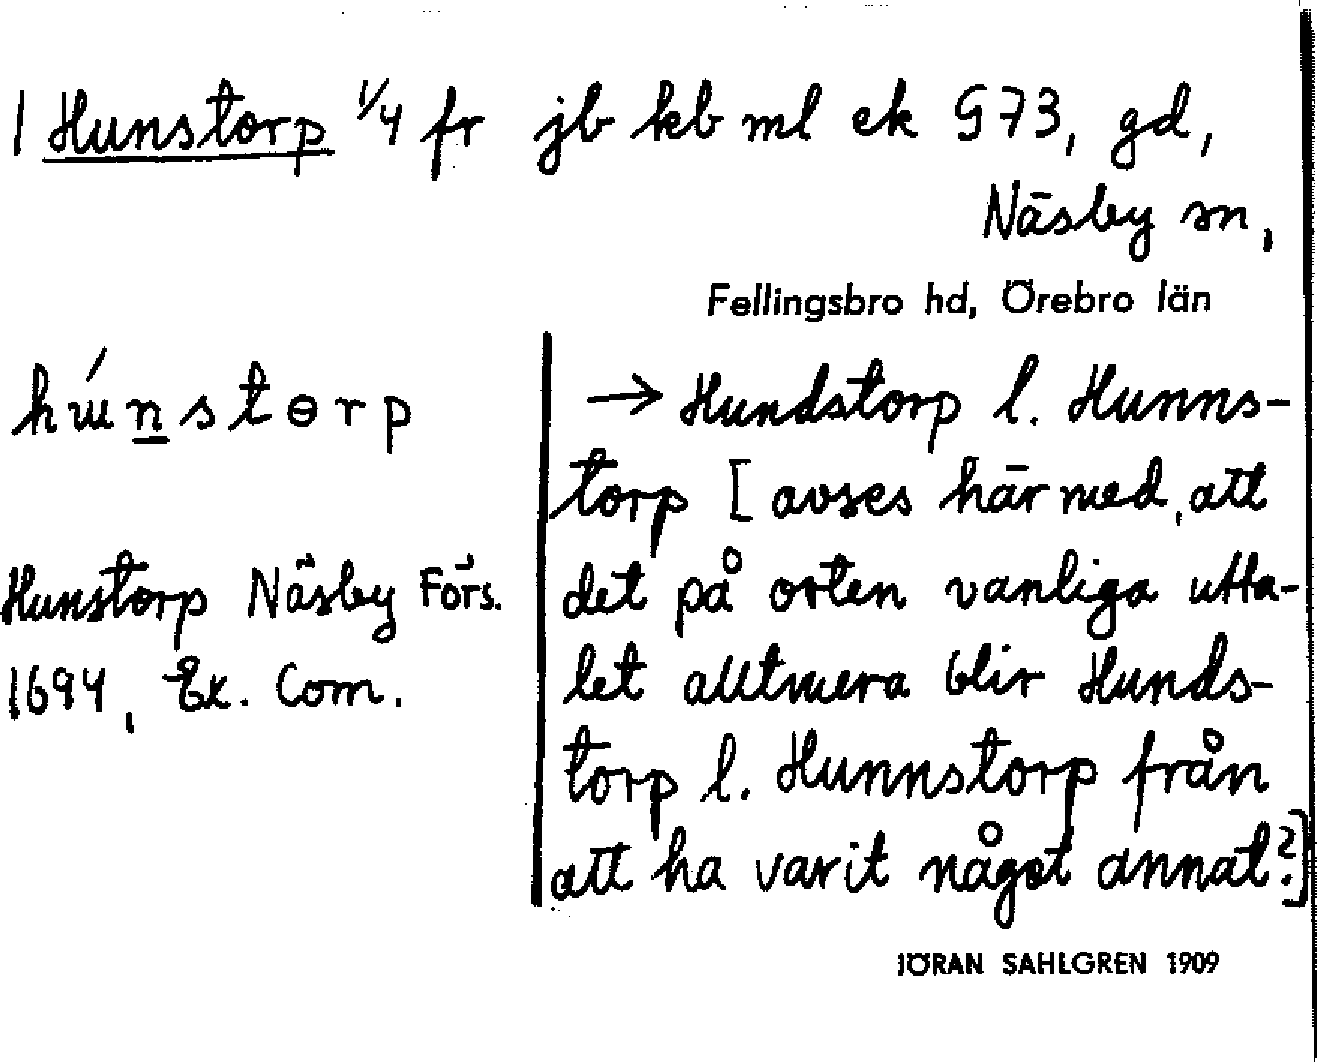 1 Hunstorp 1/4 fr jb kb ml ek G73, gd,
Näsby sn,
Fellingsbro hd, Örebro län
hɯ́n̲stɵrp
Hunstorp Näsby Förs.
1694, Ex. Com.
→ Hundstorp l. Hunns-
torp [avses härmed, att
det på orten vanliga utta-
let alltmera blir Hunds-
torp l. Hunnstorp från
att ha varit något annat?]
JÖRAN SAHLGREN 1909